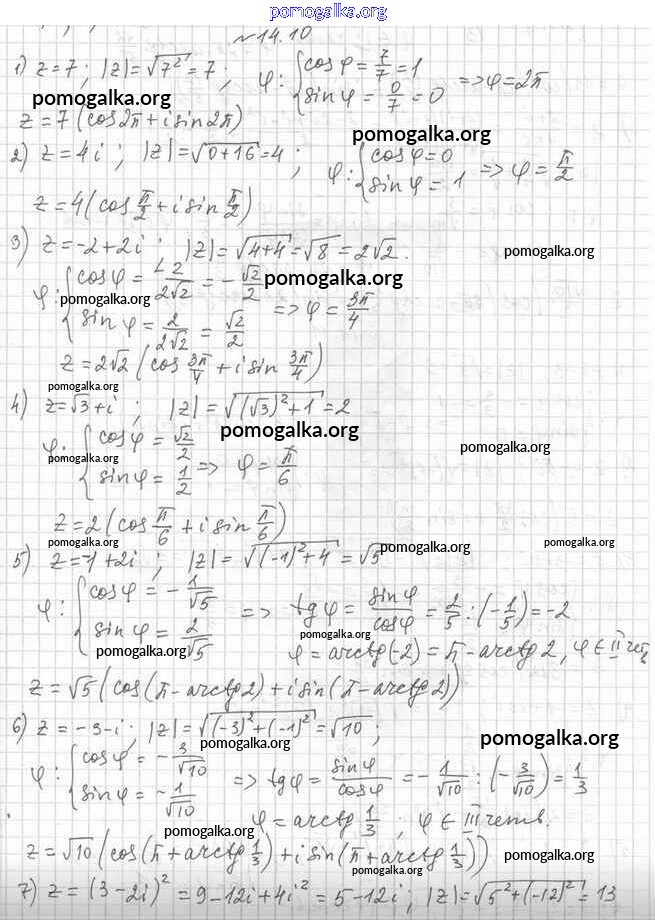 pomogalka.org
№14.10
1) z=7; |z|=√7² = 7; φ: { cos φ = 7/7 = 1
sin φ = 0/7 = 0 => φ=2π
pomogalka.org
z=7(cos2π+i sin2π)
pomogalka.org
2) z=4i; |z|=√0+16=4; φ: { cos φ=0
sin φ=1 => φ=π/2
z=4(cos π/2 + i sin π/2)
3) z=-2+2i; |z|=√4+4=√8=2√2.
pomogalka.org
φ: { cos φ = -2/2√2 = -√2/2
pomogalka.org
pomogalka.org
sin φ = 2/2√2 = √2/2 => φ=3π/4
z=2√2(cos 3π/4 + i sin 3π/4)
pomogalka.org
4) z=√3+i; |z|=√(√3)²+1=2
pomogalka.org
φ: { cos φ = √2/2
pomogalka.org
pomogalka.org
sin φ = 1/2 => φ = π/6
z=2(cos π/6 + i sin π/6)
pomogalka.org
pomogalka.org
5) z=-1+2i; |z|=√(-1)²+4=√5
pomogalka.org
φ: { cos φ = -1/√5
sin φ = 2/√5 => tg φ = sin φ/cos φ = 2/5 : (-1/5) = -2
pomogalka.org
pomogalka.org
φ=arctg(-2)=π-arctg2, φ∈II четв
z=√5(cos(π-arctg2)+i sin(π-arctg2))
6) z=-3-i; |z|=√(-3)²+(-1)²=√10;
pomogalka.org
pomogalka.org
φ: { cos φ = -3/√10
sin φ = -1/√10 => tg φ = sin φ/cos φ = -1/√10 : (-3/√10) = 1/3
φ=arctg 1/3; φ∈III четв.
pomogalka.org
z=√10(cos(π+arctg 1/3)+i sin(π+arctg 1/3))
pomogalka.org
pomogalka.org
7) z=(3-2i)²=9-12i+4i²=5-12i; |z|=√5²+(-12)²=13